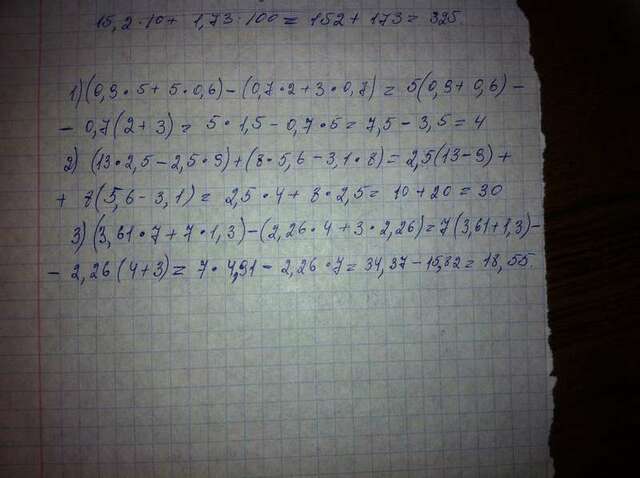 15,2·10+ 1,73·100 = 152 + 173 = 325.
1) (0,9·5 + 5·0,6) – (0,7·2 + 3·0,7) = 5(0,9 + 0,6) –
– 0,7(2 + 3) = 5·1,5 – 0,7·5 = 7,5 – 3,5 = 4
2) (13·2,5 – 2,5·9) + (8·5,6 – 3,1·8) = 2,5(13 – 9) +
+ 8(5,6 – 3,1) = 2,5·4 + 8·2,5 = 10 + 20 = 30
3) (3,61·7 + 7·1,3) – (2,26·4 + 3·2,26) = 7(3,61 + 1,3) –
– 2,26(4 + 3) = 7·4,91 – 2,26·7 = 34,37 – 15,82 = 18,55.